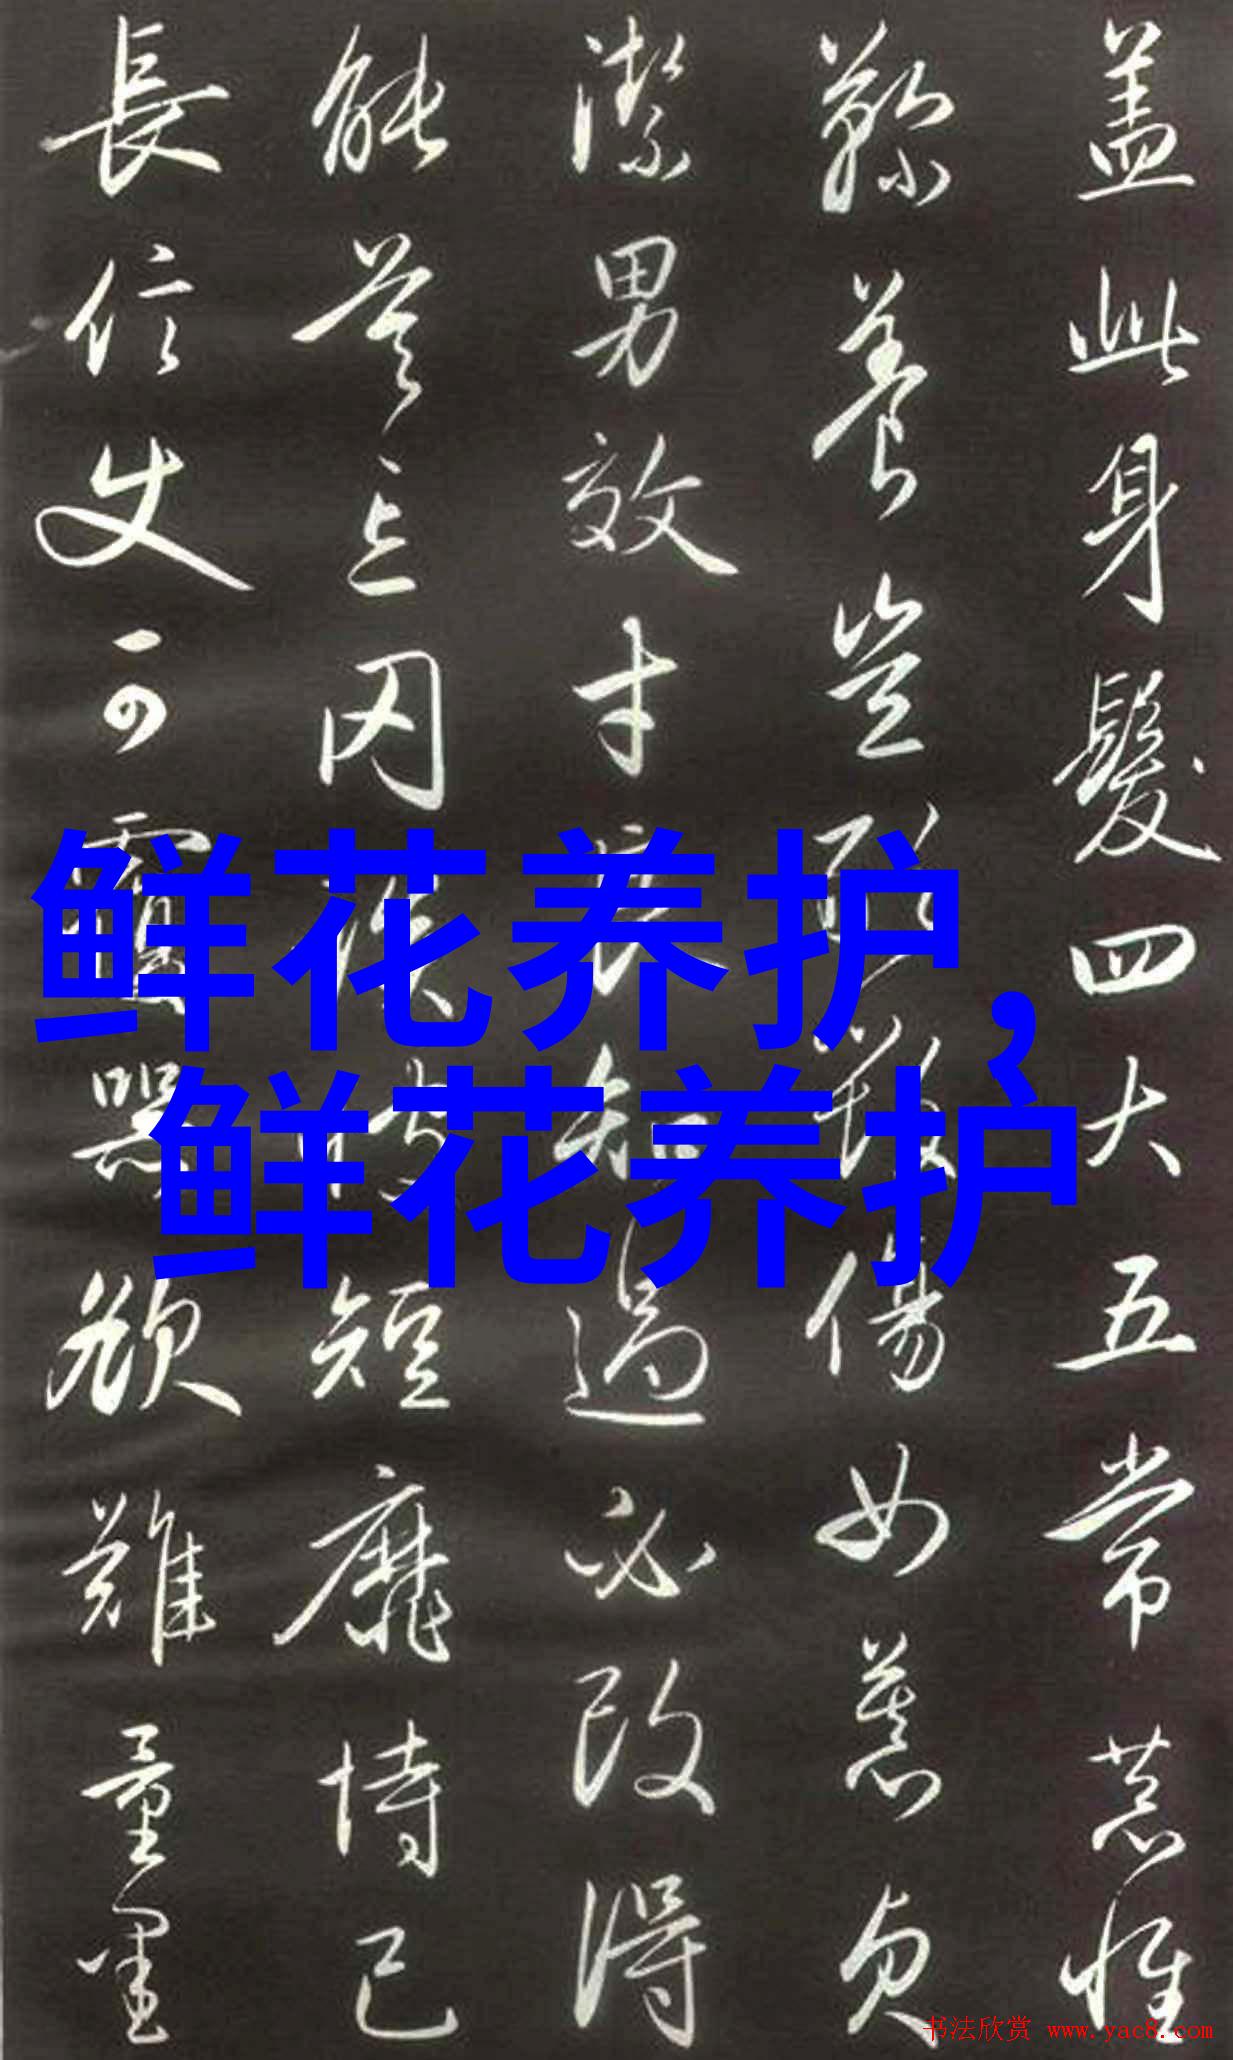 盖此身髮四大五常恭惟
鞠養豈敢毀傷女慕貞
潔男效才良知過必改得
能莫忘罔談彼短靡恃己
長信使可覆器欲難量墨
鲜花养护,
鲜花养护
书法欣赏 www.yac8.com